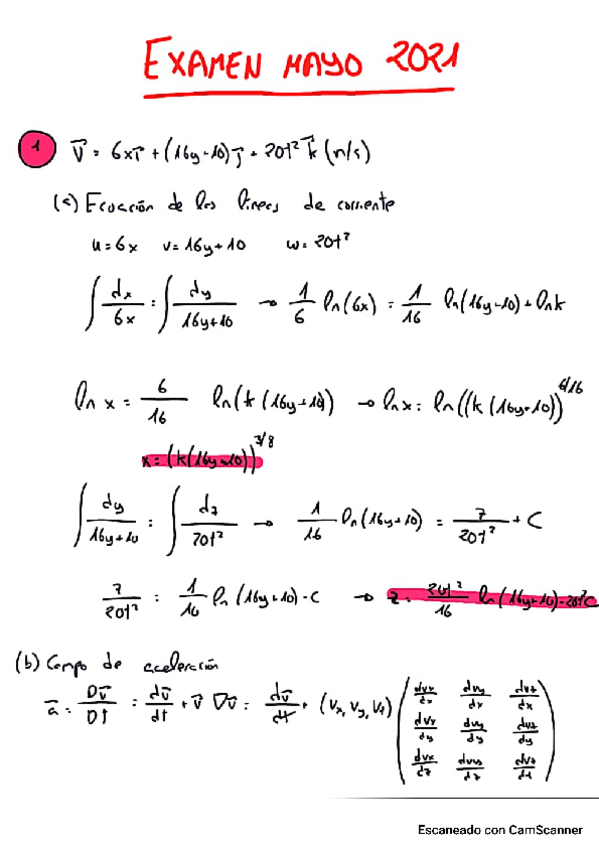 EXAMEN MAYO 2021
1 V⃗ = 6x i⃗ + (16y+10) j⃗ + 20t² k⃗ (m/s)
(a) Ecuación de las líneas de corriente
u = 6x v = 16y + 10 w = 20t²
∫ dx/6x = ∫ dy/(16y+10) → 1/6 ln(6x) = 1/16 ln(16y+10) + ln k
ln x = 6/16 ln(k(16y+10)) → ln x = ln((k(16y+10))^6/16
x = (k(16y+10))^3/8
∫ dy/(16y+10) = ∫ dz/20t² → 1/16 ln(16y+10) = z/20t² + C
z/20t² = 1/16 ln(16y+10) - C → z = 20t²/16 ln(16y+10) - 20t²C
(b) Campo de aceleración
a⃗ = Dv⃗/Dt = dv⃗/dt + v⃗ ∇v⃗ = dv⃗/dt + (Vx, Vy, Vz) ( dvx/dx dvy/dx dvz/dx
dvx/dy dvy/dy dvz/dy
dvx/dz dvy/dz dvz/dz )
Escaneado con CamScanner